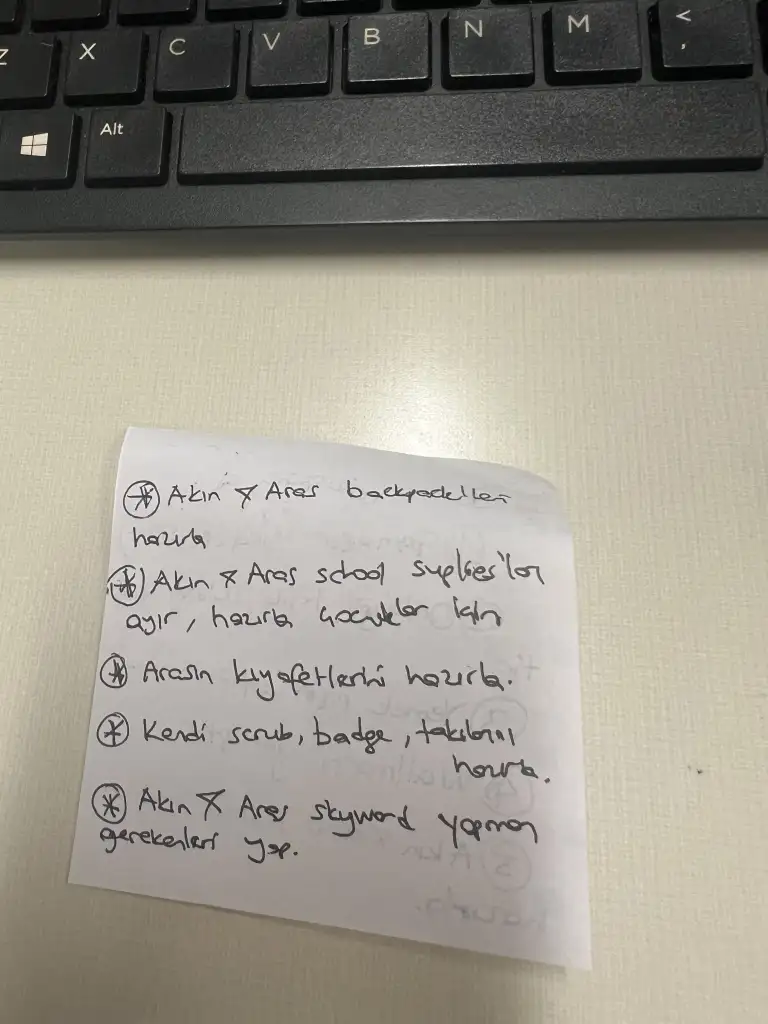 Z X C V B N M <
,
Alt
⊛ Akın & Aras backpack'leri
hazırla
⊛ Akın & Aras school supplies'ları
ayır, hazırla çocuklar için
⊛ Arasın kıyafetlerini hazırla.
⊛ Kendi scrub, badge, takılarını
hazırla.
⊛ Akın & Aras skyword yapman
gerekenleri yap.